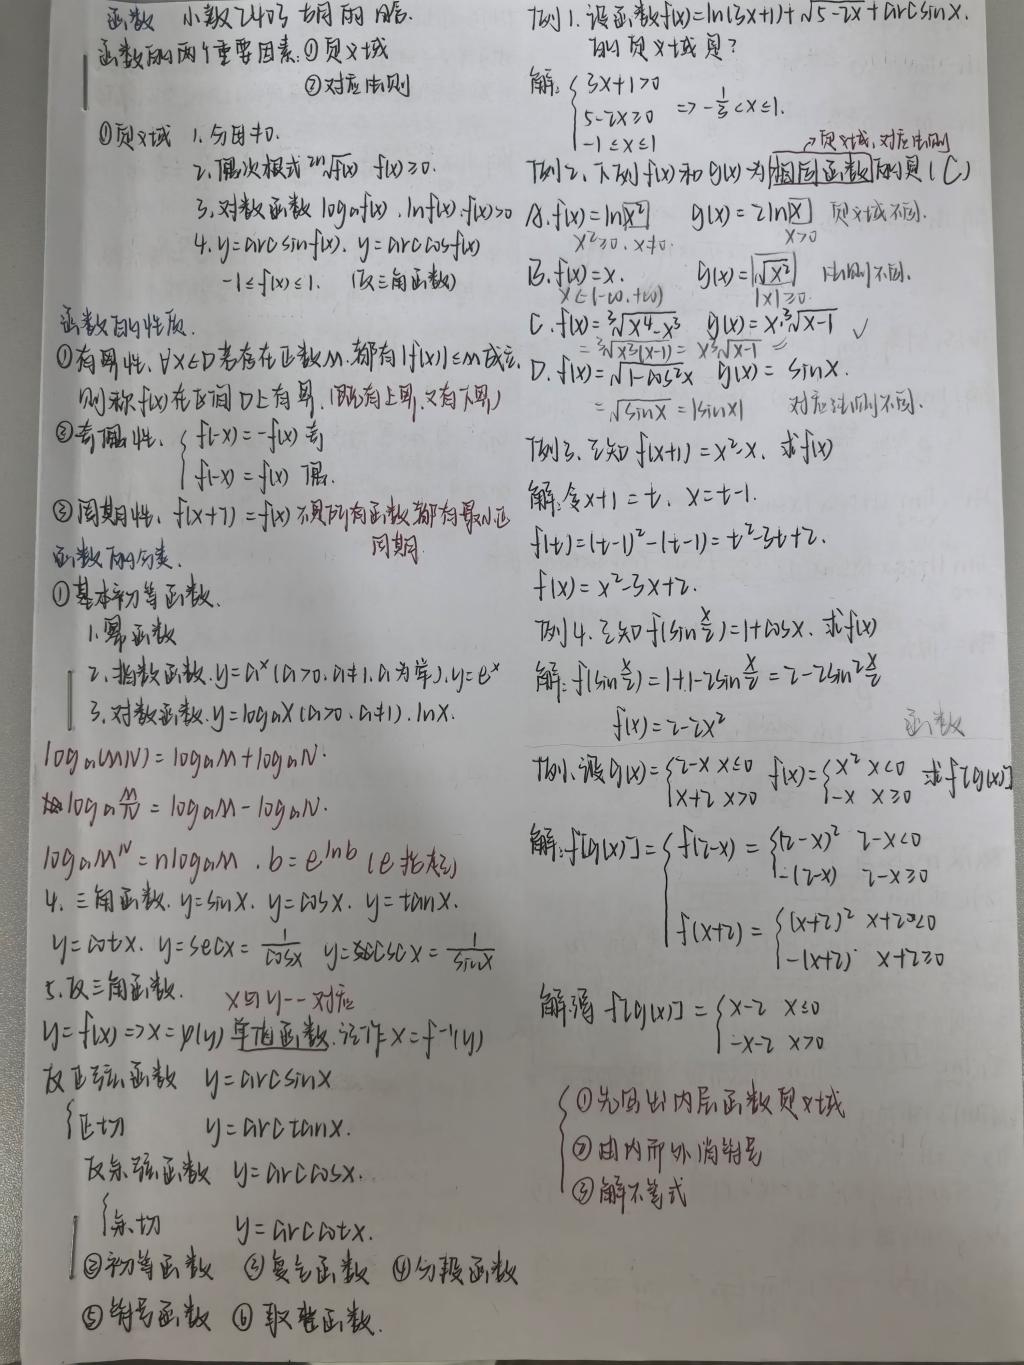 函数
函数的两个重要因素:①定义域
②对应法则
①定义域 1.分母≠0.
2.偶次根式 ²ⁿ√f(x) f(x)≥0.
3.对数函数 logₐf(x).lnf(x).f(x)>0
4.y=arcsinf(x).y=arccosf(x)
-1≤f(x)≤1. (反三角函数)
函数的性质.
①有界性.∀x∈D若存在正数M.都有|f(x)|≤M成立.
则称f(x)在区间D上有界.(既有上界.又有下界)
②奇偶性.{f(-x)=-f(x) 奇
f(-x)=f(x) 偶.
③周期性.f(x+T)=f(x) 不是所有函数都有最小正
周期.
函数的分类.
①基本初等函数.
1.幂函数
2.指数函数.y=aˣ(a>0.a≠1.a为常).y=eˣ
3.对数函数.y=logₐx(a>0.a≠1).lnx.
logₐ(MN)=logₐM+logₐN.
logₐM/N=logₐM-logₐN.
logₐMᴺ=nlogₐM.b=e^lnb(e抬起)
4.三角函数.y=sinx.y=cosx.y=tanx.
y=cotx.y=secx=1/cosx y=cscx=1/sinx
5.反三角函数. x与y一一对应
y=f(x)=>x=φ(y)单值函数.记作x=f⁻¹(y)
反正弦函数 y=arcsinx
{正切 y=arctanx.
反余弦函数 y=arccosx.
{余切 y=arccotx.
②初等函数 ③复合函数 ④分段函数
⑤符号函数 ⑥取整函数.
例1.设函数f(x)=ln(3x+1)+√5-2x+arcsinx.
的定义域是?
解:{3x+1>0
5-2x≥0 => -1/3<x≤1.
-1≤x≤1
↗定义域.对应法则
例2.下列f(x)和g(x)为相同函数的是(C)
A.f(x)=lnx² g(x)=2lnx 定义域不同.
x²≥0.x≠0. x>0
B.f(x)=x. g(x)=√x² 法则不同.
x∈(-∞.+∞) |x|≥0.
C.f(x)=³√x⁴-x³ g(x)=x·³√x-1 ✓
=³√x³(x-1)=x³√x-1
D.f(x)=√1-cos²x g(x)=sinx.
=√sinx=|sinx| 对应法则不同.
例3.已知f(x+1)=x²-x.求f(x)
解:令x+1=t.x=t-1.
f(t)=(t-1)²-(t-1)=t²-3t+2.
f(x)=x²-3x+2.
例4.已知f(sin x/2)=1+cosx.求f(x)
解:f(sin x/2)=1+1-2sin x/2=2-2sin² x/2
f(x)=2-2x² 函数
例1.设g(x)={2-x x≤0 f(x)={x² x<0 求f[g(x)]
x+2 x>0 -x x≥0
解:f[g(x)]={f(2-x)={(2-x)² 2-x<0
-(2-x) 2-x≥0
f(x+2)={(x+2)² x+2<0
-(x+2) x+2≥0
解得f[g(x)]={x-2 x≤0
-x-2 x>0
{①先写出内层函数定义域
②由内而外消符号
③解不等式